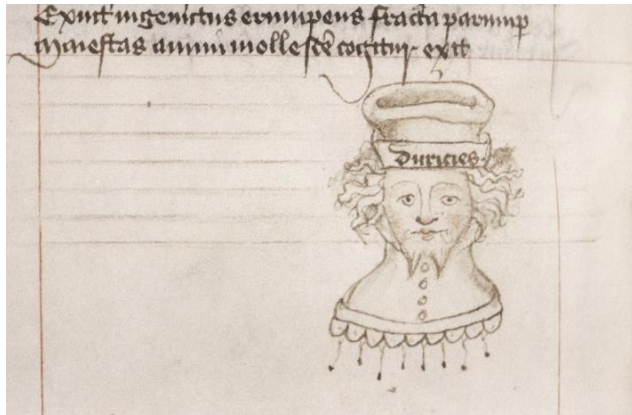 Exiit ingemitus erumpens fracta parump
Maiestas animi mollesce cogitur exit
duricies